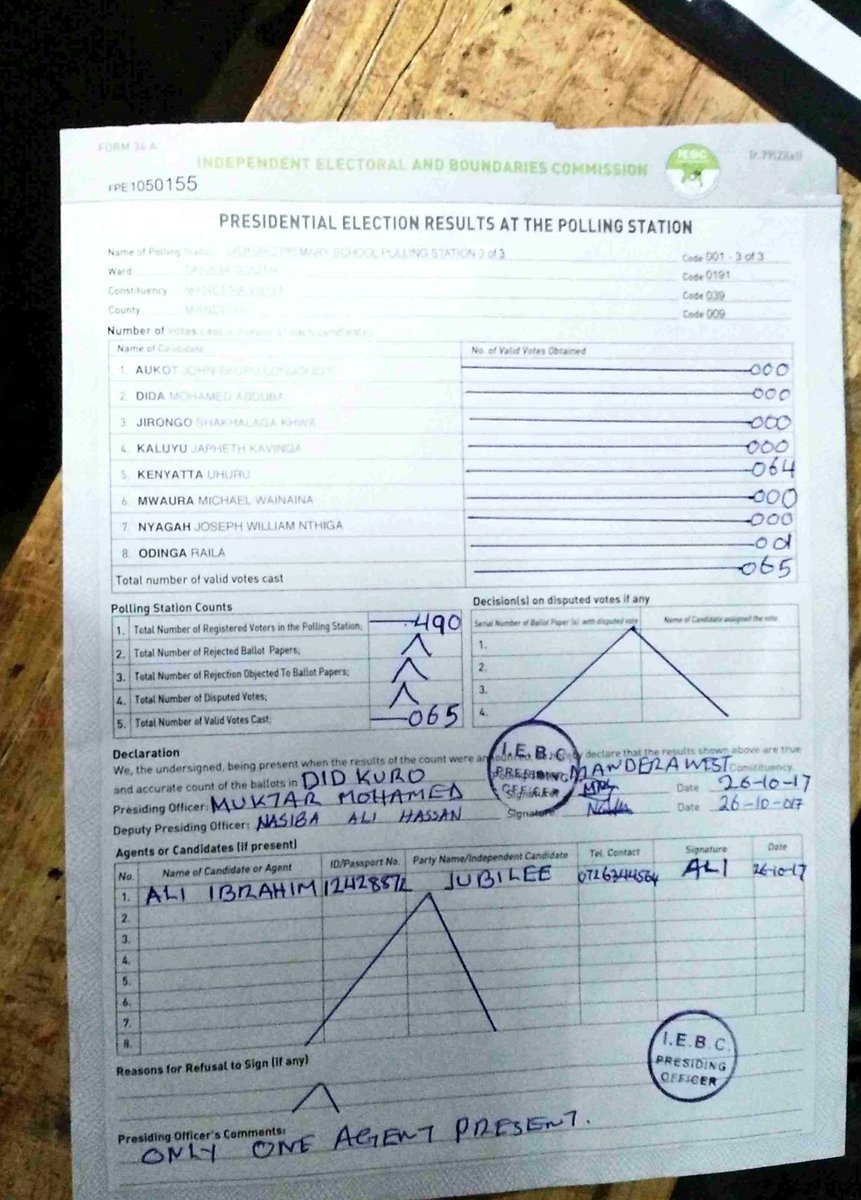 FORM 34 A
INDEPENDENT ELECTORAL AND BOUNDARIES COMMISSION
IEBC
FPE1050155
PRESIDENTIAL ELECTION RESULTS AT THE POLLING STATION
Name of Polling Station PRIMARY SCHOOL POLLING STATION 3 of 3 Code 001 - 3 of 3
Ward Code 0191
Constituency MANDERA WEST Code 039
County MANDERA Code 009
Number of votes cast in favour of each candidate:
Name of Candidate No. of Valid Votes Obtained
1. AUKOT JOHN EKURU 000
2. DIDA MOHAMED ABDUBA 000
3. JIRONGO SHAKHALAGA KHWA 000
4. KALUYU JAPHETH KAVINGA 000
5. KENYATTA UHURU 064
6. MWAURA MICHAEL WAINAINA 000
7. NYAGAH JOSEPH WILLIAM NTHIGA 000
8. ODINGA RAILA 001
Total number of valid votes cast 065
Polling Station Counts
1. Total Number of Registered Voters in the Polling Station; 490
2. Total Number of Rejected Ballot Papers;
3. Total Number of Rejection Objected To Ballot Papers;
4. Total Number of Disputed Votes;
5. Total Number of Valid Votes Cast; 065
Decision(s) on disputed votes if any
Serial Number of Ballot Paper (s) with disputed vote Name of Candidate assigned the vote
1.
2.
3.
4.
Declaration
We, the undersigned, being present when the results of the count were declare that the results shown above are true
and accurate count of the ballots in DID KURO MANDERA WEST Constituency.
Presiding Officer: MUKTAR MOHAMED Signature Date 26-10-17
Deputy Presiding Officer: NASIBA ALI HASSAN Signature: Date 26-10-017
I.E.B.C
PRESIDING
OFFICER
Agents or Candidates (if present)
No. Name of Candidate or Agent ID/Passport No. Party Name/Independent Candidate Tel. Contact Signature Date
1. ALI IBRAHIM 12428572 JUBILEE 0726344564 ALI 26-10-17
2.
3.
4.
5.
6.
7.
8.
I.E.B.C.
PRESIDING
OFFICER
Reasons for Refusal to Sign (if any)
Presiding Officer's Comments:
ONLY ONE AGENT PRESENT.